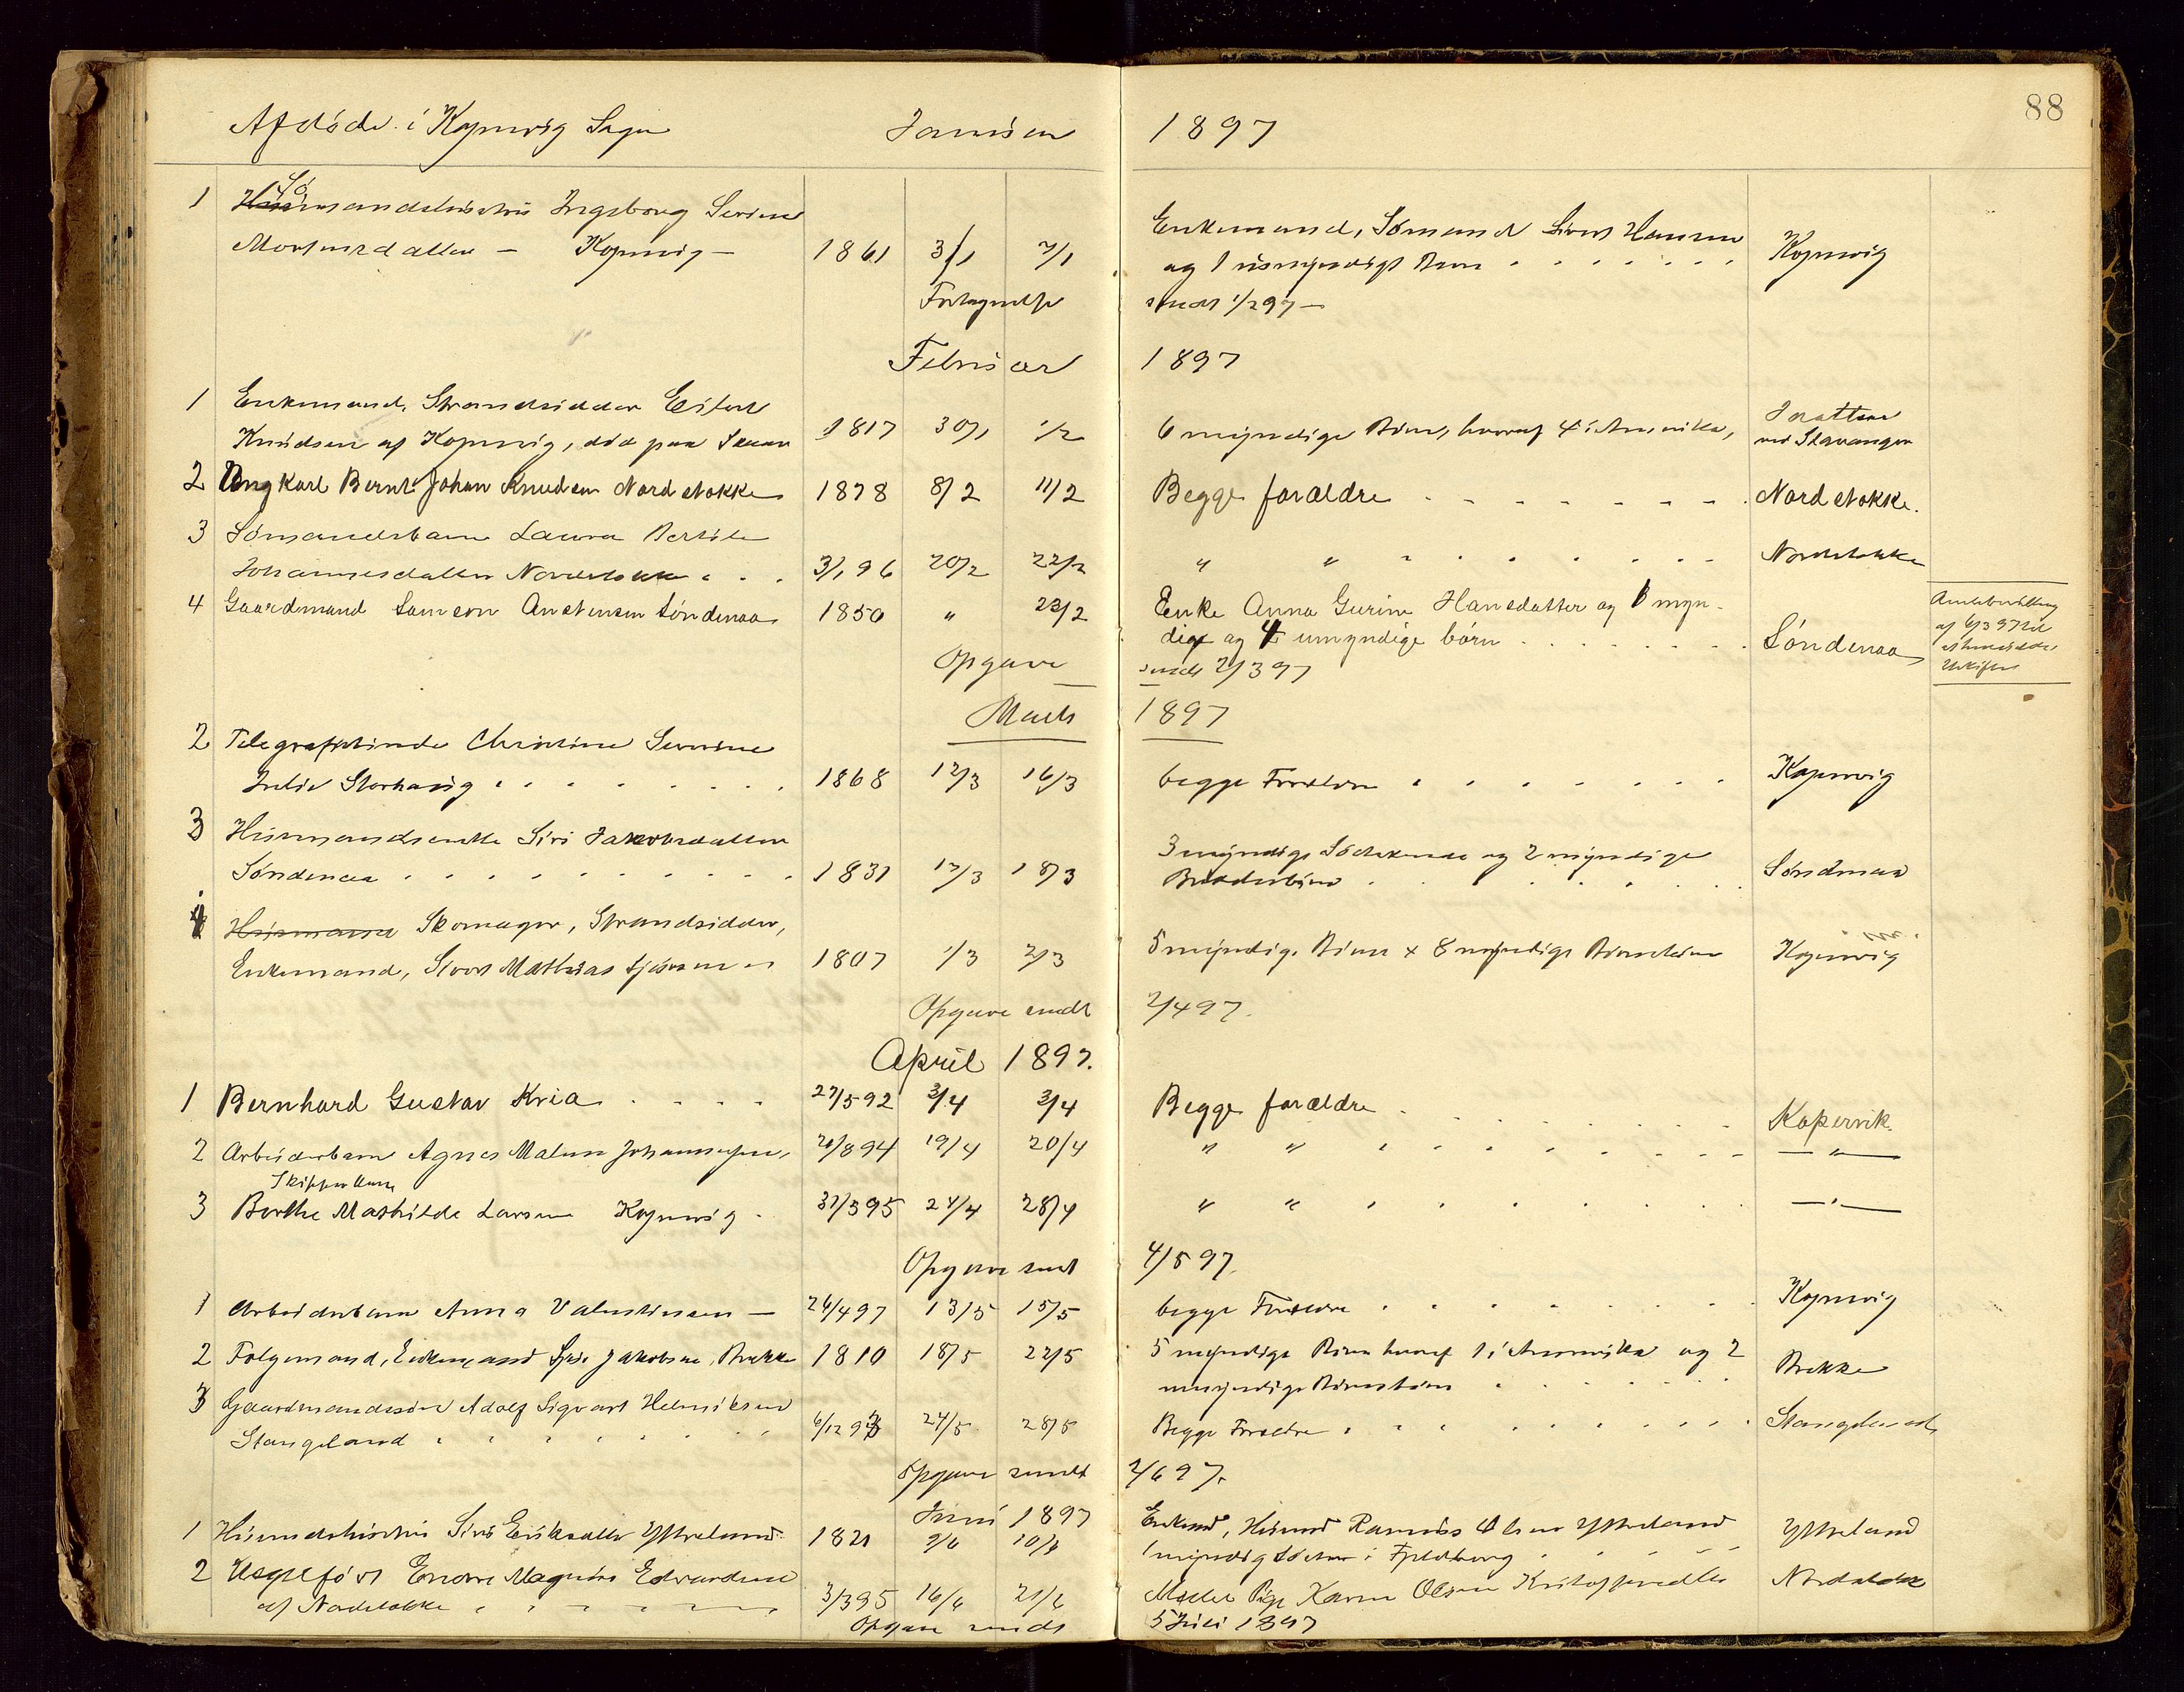 88
Afdøde i Kopervig Sogn Januar 1897
1 Husmandshustru Ingeborg Serine
Mortensdatter - Kopervig - 1861 3/1 7/1 Enkemand, Sømand Sivert Hansen Kopervig
og 1 umyndigt Barn
Fortegnelse sendt 1/2 97 -
Februar 1897
1 Enkemand, Strandsidder Eilert
Knudsen af Kopervig, død paa 1817 30/1 1/2 6 myndige Børn, hvoraf 4 i Amerika, Jaatten
ved Stavanger
2 Ung karl Bernt Johan Knudsen Nordstokke 1878 8/2 11/2 Begge forældre Nordstokke.
3 Sømandsbarn Laura Bertile
Johannesdatter Nordstokke 3/1 96 20/2 22/2 " " Nordstokke
4 Gaardmand Samson Anstensen Søndenaa 1850 " 23/2 Enke Anna Gurine Hansdatter og 1 myn-
dig og 4 umyndige børn Søndenaa
af 6/3 97 til
Opgave sendt 2/3 97
Marts 1897
2 Telegrafistinde Christine Severine
Julie Storhaug 1868 12/3 16/3 begge Forældre Kopervig
3 Husmandsenke Siri Jakobsdatter
Søndenaa 1831 12/3 18/3 3 myndige Sødskende og 2 myndige
Broderbørn Søndenaa
4 Husmand Skomager, Strandsidder,
Enkemand, Sivert Mathias 1807 1/3 2/3 5 myndige Børn + 8 myndige Børnebørn Kopervig
Opgave sendt 2/4 97.
April 1897.
1 Bernhard Gustav Kria 27/5 92 3/4 3/4 Begge forældre Kopervik
2 Arbeiderbarn Agnes Malene Johannessen, 20/8 94 19/4 20/4 " " — " —
Skipperbarn
3 Berthe Mathilde Larsen Kopervig 31/5 95 24/4 28/4 " " — " —
Opgave sendt 4/5 97.
1 Arbeiderbarn Anna Valentinsen — 26/4 97 13/5 15/5 begge Forældre Kopervig
2 Folgemand, Enkemand Jakobsen, Brekke 1810 18/5 22/5 5 myndige Børn hvoraf 1 i Amerika og 2
umyndige Børnebørn Brekke
3 Gaardmandssøn Adolf Sigvart Henriksen
Stangeland 6/12 93 24/5 28/5 Begge Forældre Stangeland
Opgave sendt 2/6 97.
Juni 1897
1 Husmdshustru Siri Eriksdatter Ytreland 1821 9/6 10/6 Enkemd, Husmd Rasmus Olsen Ytreland Ytreland
1 myndig Datter i
2 Uægtefødt Endre Magnus Edvardsen
af Nordstokke 3/3 95 16/6 21/6 Moder Pige Karen Olsen Kristoffersdtr Nordstokke
Opgave sendt 5 Juli 1897